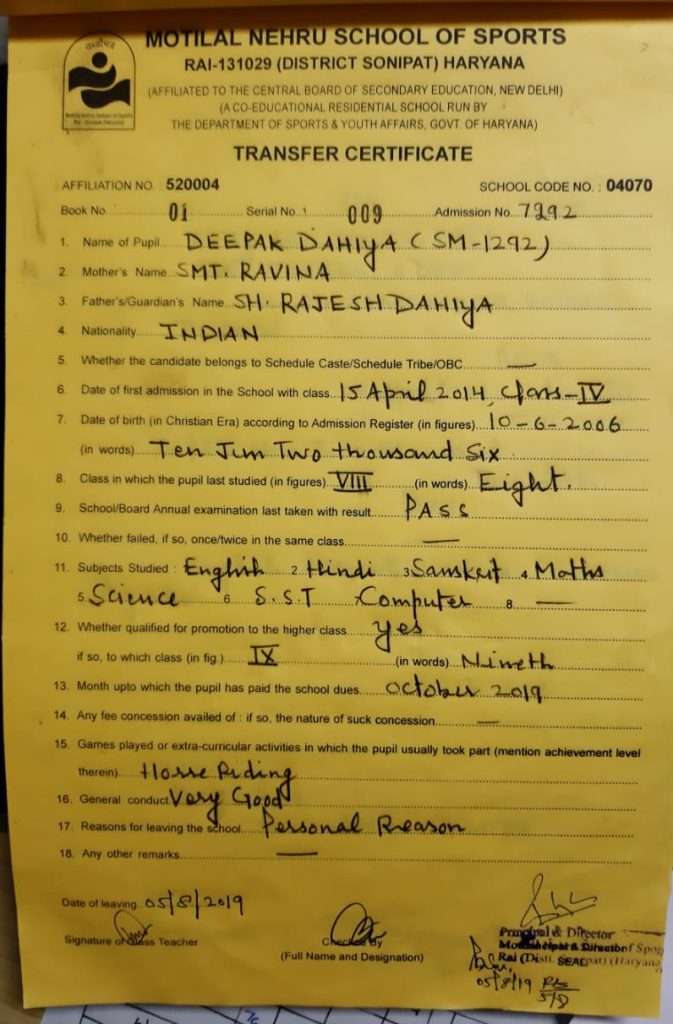 MOTILAL NEHRU SCHOOL OF SPORTS
RAI-131029 (DISTRICT SONIPAT) HARYANA
(AFFILIATED TO THE CENTRAL BOARD OF SECONDARY EDUCATION, NEW DELHI)
(A CO-EDUCATIONAL RESIDENTIAL SCHOOL RUN BY
THE DEPARTMENT OF SPORTS & YOUTH AFFAIRS, GOVT. OF HARYANA)
Motilal Nehru School of Sports
Rai - Sonipat (Haryana)
TRANSFER CERTIFICATE
AFFILIATION NO. 520004 SCHOOL CODE NO. : 04070
Book No. 01 Serial No. 009 Admission No. 7292
1. Name of Pupil DEEPAK DAHIYA (SM-1292)
2. Mother's Name SMT. RAVINA
3. Father's/Guardian's Name SH. RAJESH DAHIYA
4. Nationality INDIAN
5. Whether the candidate belongs to Schedule Caste/Schedule Tribe/OBC —
6. Date of first admission in the School with class 15 April 2014, Class-IV
7. Date of birth (in Christian Era) according to Admission Register (in figures) 10-6-2006
(in words) Ten Jun Two thousand Six.
8. Class in which the pupil last studied (in figures) VIII (in words) Eight.
9. School/Board Annual examination last taken with result PASS
10. Whether failed, if so, once/twice in the same class —
11. Subjects Studied : English 2. Hindi 3. Sanskrit 4. Maths
5. Science 6. S.ST 7. Computer 8. —
12. Whether qualified for promotion to the higher class yes
if so, to which class (in fig.) IX (in words) Nineth
13. Month upto which the pupil has paid the school dues October 2019
14. Any fee concession availed of : if so, the nature of suck concession —
15. Games played or extra-curricular activities in which the pupil usually took part (mention achievement level
therein) Horse Riding
16. General conduct Very Good
17. Reasons for leaving the school Personal Reason
18. Any other remarks —
Date of leaving 05/8/2019
Signature of Class Teacher Checked By
(Full Name and Designation)
Principal & Director
Rai (Distt. Sonepat) (Haryana)
SEAL
05/8/19
5/8